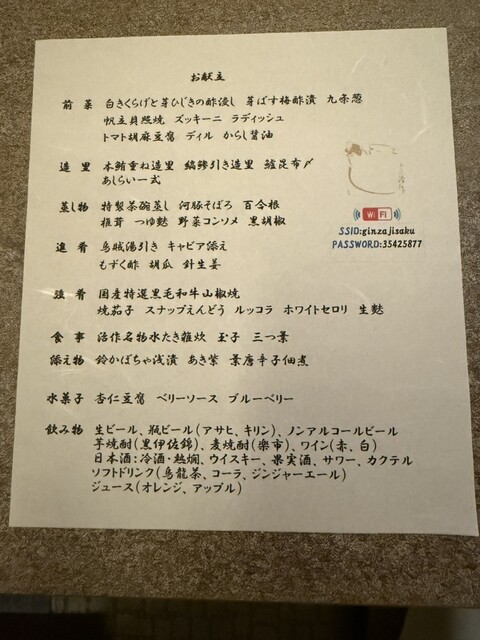 お献立
前菜 白きくらげと芽ひじきの酢浸し 芽ばす梅酢漬 九条葱
帆立貝照焼 ズッキーニ ラディッシュ
トマト胡麻豆腐 ディル からし醤油
造里 本鮪重ね造里 縞鯵引き造里 鱸昆布〆
あしらい一式
蒸し物 特製茶碗蒸し 河豚そぼろ 百合根
椎茸 つゆ麩 野菜コンソメ 黒胡椒
進肴 烏賊湯引き キャビア添え
もずく酢 胡瓜 針生姜
強肴 国産特選黒毛和牛山椒焼
焼茄子 スナップえんどう ルッコラ ホワイトセロリ 生麩
食事 治作名物水たき雑炊 玉子 三つ葉
添え物 鈴かぼちゃ浅漬 あき紫 葉唐辛子佃煮
水菓子 杏仁豆腐 ベリーソース ブルーベリー
飲み物 生ビール、瓶ビール(アサヒ、キリン)、ノンアルコールビール
芋焼酎(黒伊佐錦)、麦焼酎(楽市)、ワイン(赤、白)
日本酒:冷酒・熱燗、ウイスキー、果実酒、サワー、カクテル
ソフトドリンク(烏龍茶、コーラ、ジンジャーエール)
ジュース(オレンジ、アップル)
WiFi
SSID:ginzajisaku
PASSWORD:35425877